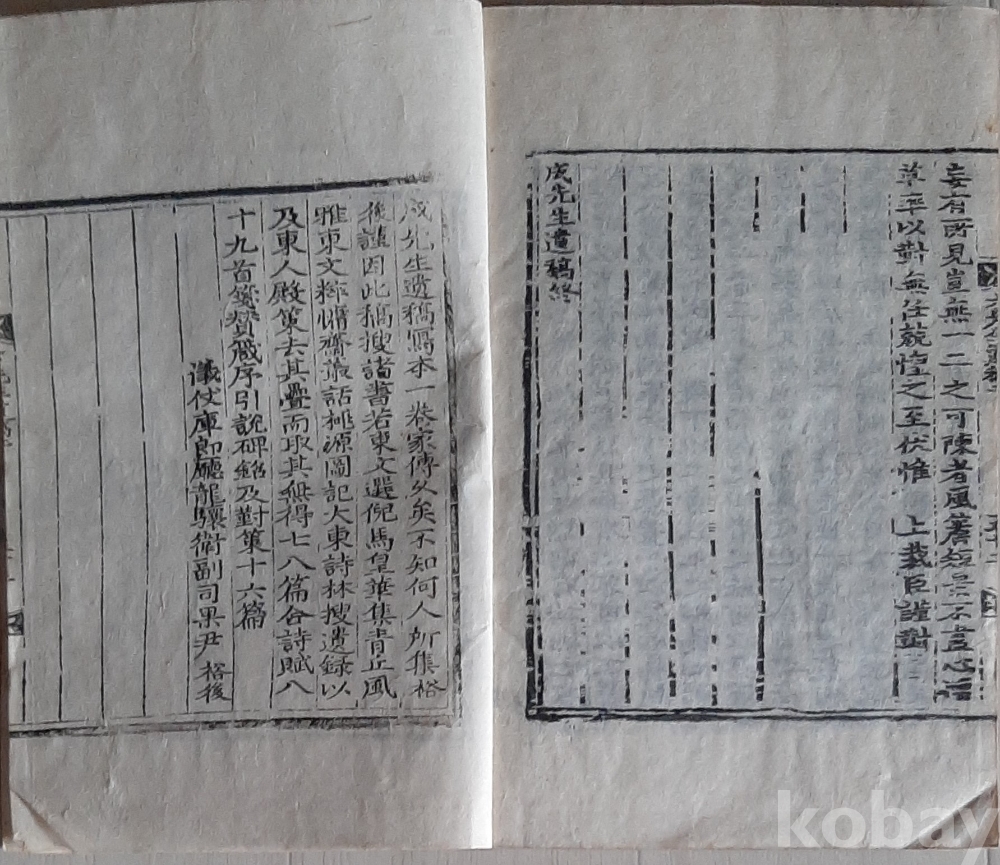 妄有所見豈無一二之可陳者風簷短晷不盡心
草率以對無任兢惶之至伏惟 上裁臣謹對
成先生遺稿終
成先生遺稿寫本一卷家傳久矣不知何人所集楁
後謹因此稿搜諸書若東文選倪馬皇華集青丘風
雅東文粹慵齋叢話桃源圖記大東詩林搜遺錄以
及東人殿策去其疊而取其無得七八篇合詩賦八
十九首箋贊箴序引說碑銘及對策十六篇
儀仗庫郎廳龍驤衛副司果尹 後
kobay